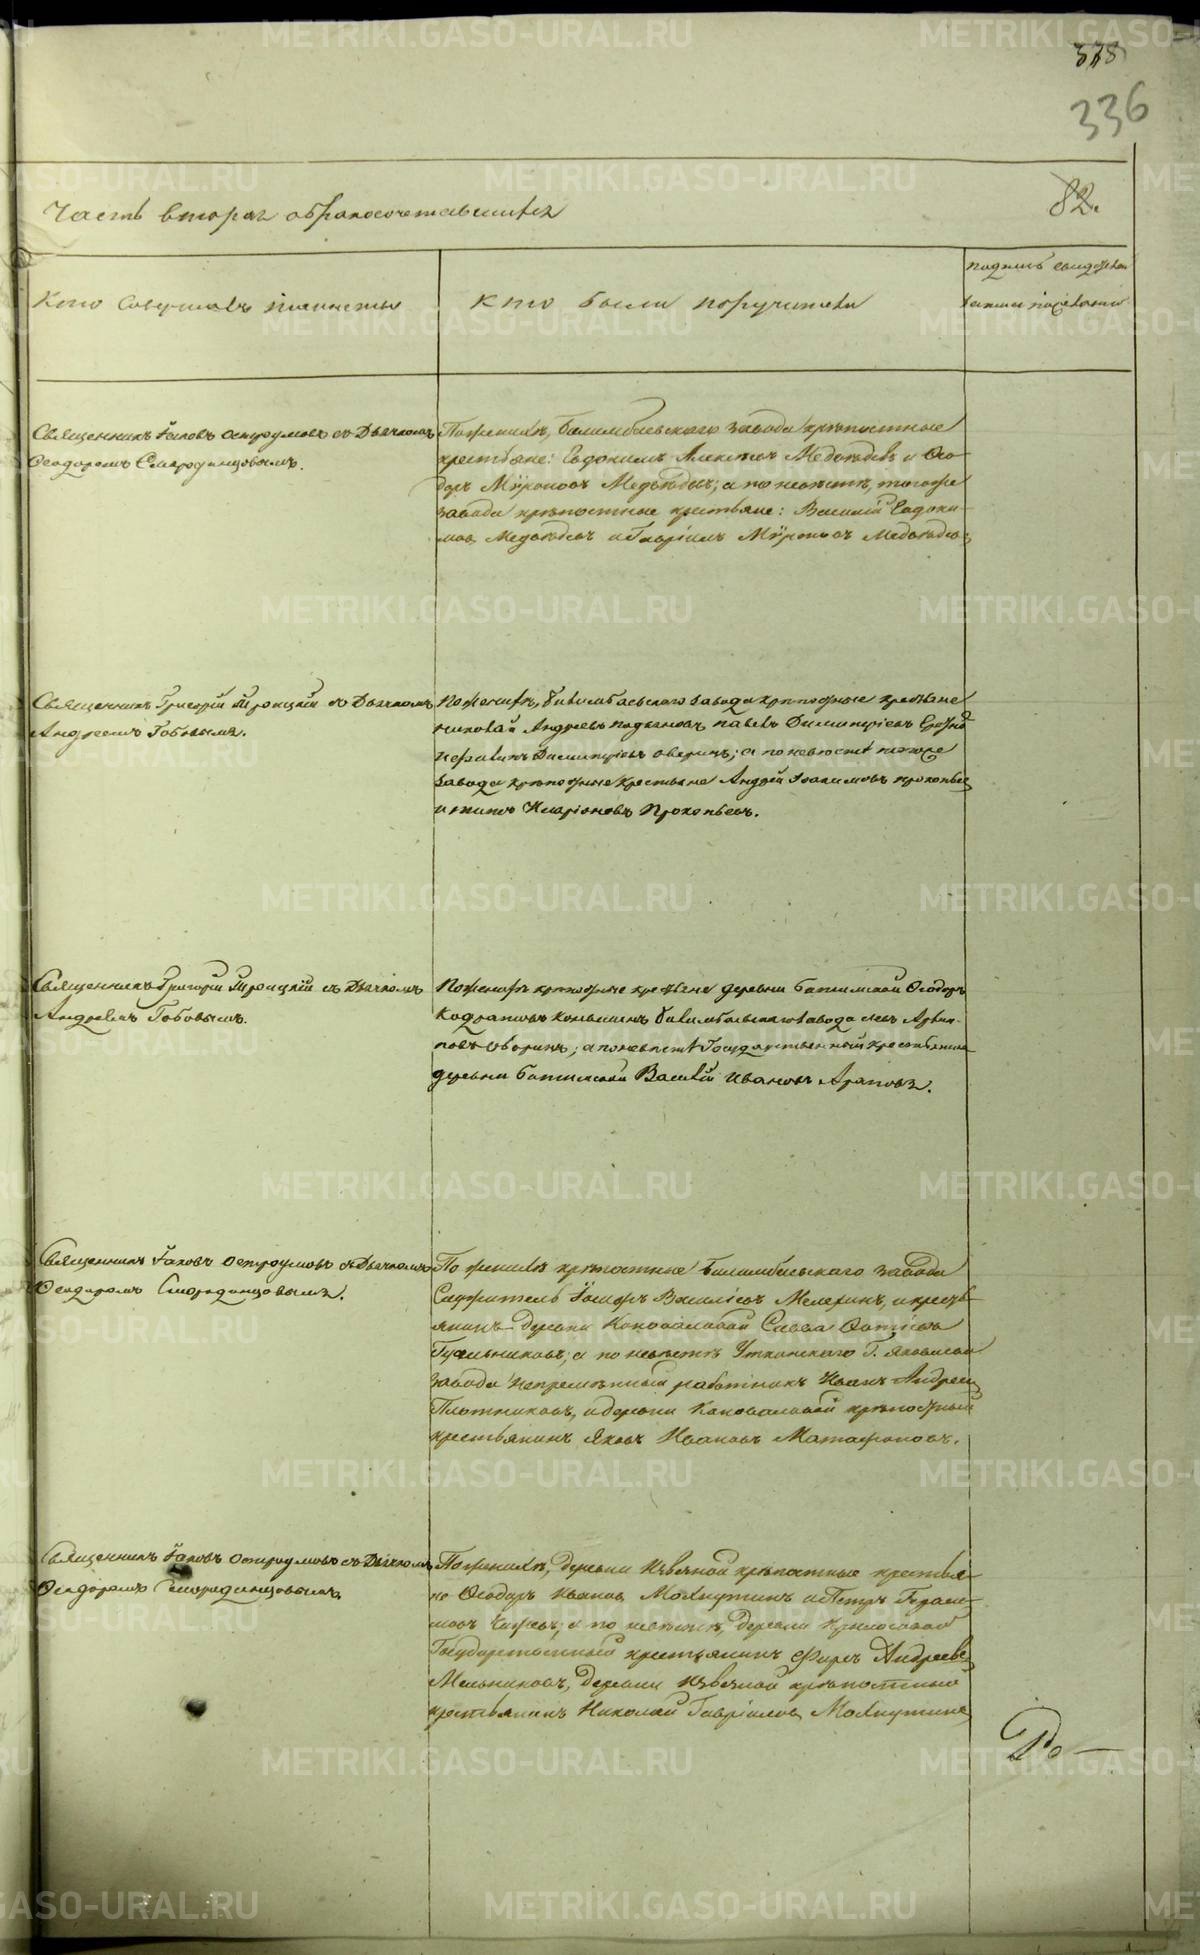 378
336
82.
Часть вторая о бракосочетавшихся
Кто совершалъ таинство
кто были поручители
подпись свидѣтел
Священникъ Іаковъ Остроумовъ съ Дьячкомъ
Ѳеодоромъ Смородинцовымъ.
По женихѣ, Билимбаевскаго завода крѣпостные
крестьяне: Евдокимъ Медвѣдевъ и Ѳео-
доръ Мѵроновъ Медвѣдевъ; а по невѣстѣ, тогоже
завода крѣпостные крестьяне: Василій Евдоки-
мовъ Медвѣдевъ и Гавріилъ Мѵроновъ Медвѣдевъ
Священникъ Григорій Троицкій съ Дьячкомъ
Андреемъ Бабовымъ.
По женихѣ, Билимбаевскаго завода крѣпостные крестьяне
Николай Андреевъ Павелъ Димитріевъ
Димитріевъ Оверинъ; а по невѣстѣ тогоже
завода крѣпостные крестьяне Андрей Прокопьев
Иларіоновъ Прокопьевъ.
Священникъ Григорій Троицкій съ Дьячкомъ
Андреемъ Бабовымъ.
По женихѣ крѣпостные крестьяне деревни Битимской Ѳеодоръ
Билимбаевскаго завода Левъ Архип-
повъ Оверинъ; а по невѣстѣ Государственный крестьянинъ
деревни Битимской Василій Ивановъ Араповъ.
Священникъ Іаковъ Остроумовъ съ Дьячкомъ
Ѳеодоромъ Смородинцовымъ.
По женихѣ крѣпостные Билимбаевскаго завода
Служитель Іосифъ Василіевъ Мелехинъ, и кресть-
янинъ деревни Коноваловой Савва
Гусельниковъ; а по невѣстѣ Уткинскаго Г. Яковлева
завода Непремѣнный работникъ Иванъ Андреев
Плотниковъ, и деревни Коноваловой крѣпостный
крестьянинъ Яковъ Ивановъ Матафоновъ.
Священникъ Іаковъ Остроумовъ съ Дьячкомъ
Ѳеодоромъ Смородинцовымъ
По женихѣ, деревни Извезной крѣпостные крестья-
не Ѳеодоръ Ивановъ Махнутинъ и Петръ Гераси-
мовъ; а по невѣстѣ, деревни Крылосовой
Государственный крестьянинъ Фирсъ Андреевъ
Мельниковъ, деревни Извезной крѣпостный
крестьянинъ Николай Гавріиловъ Махнутинъ
METRIKI.GASO-URAL.RU